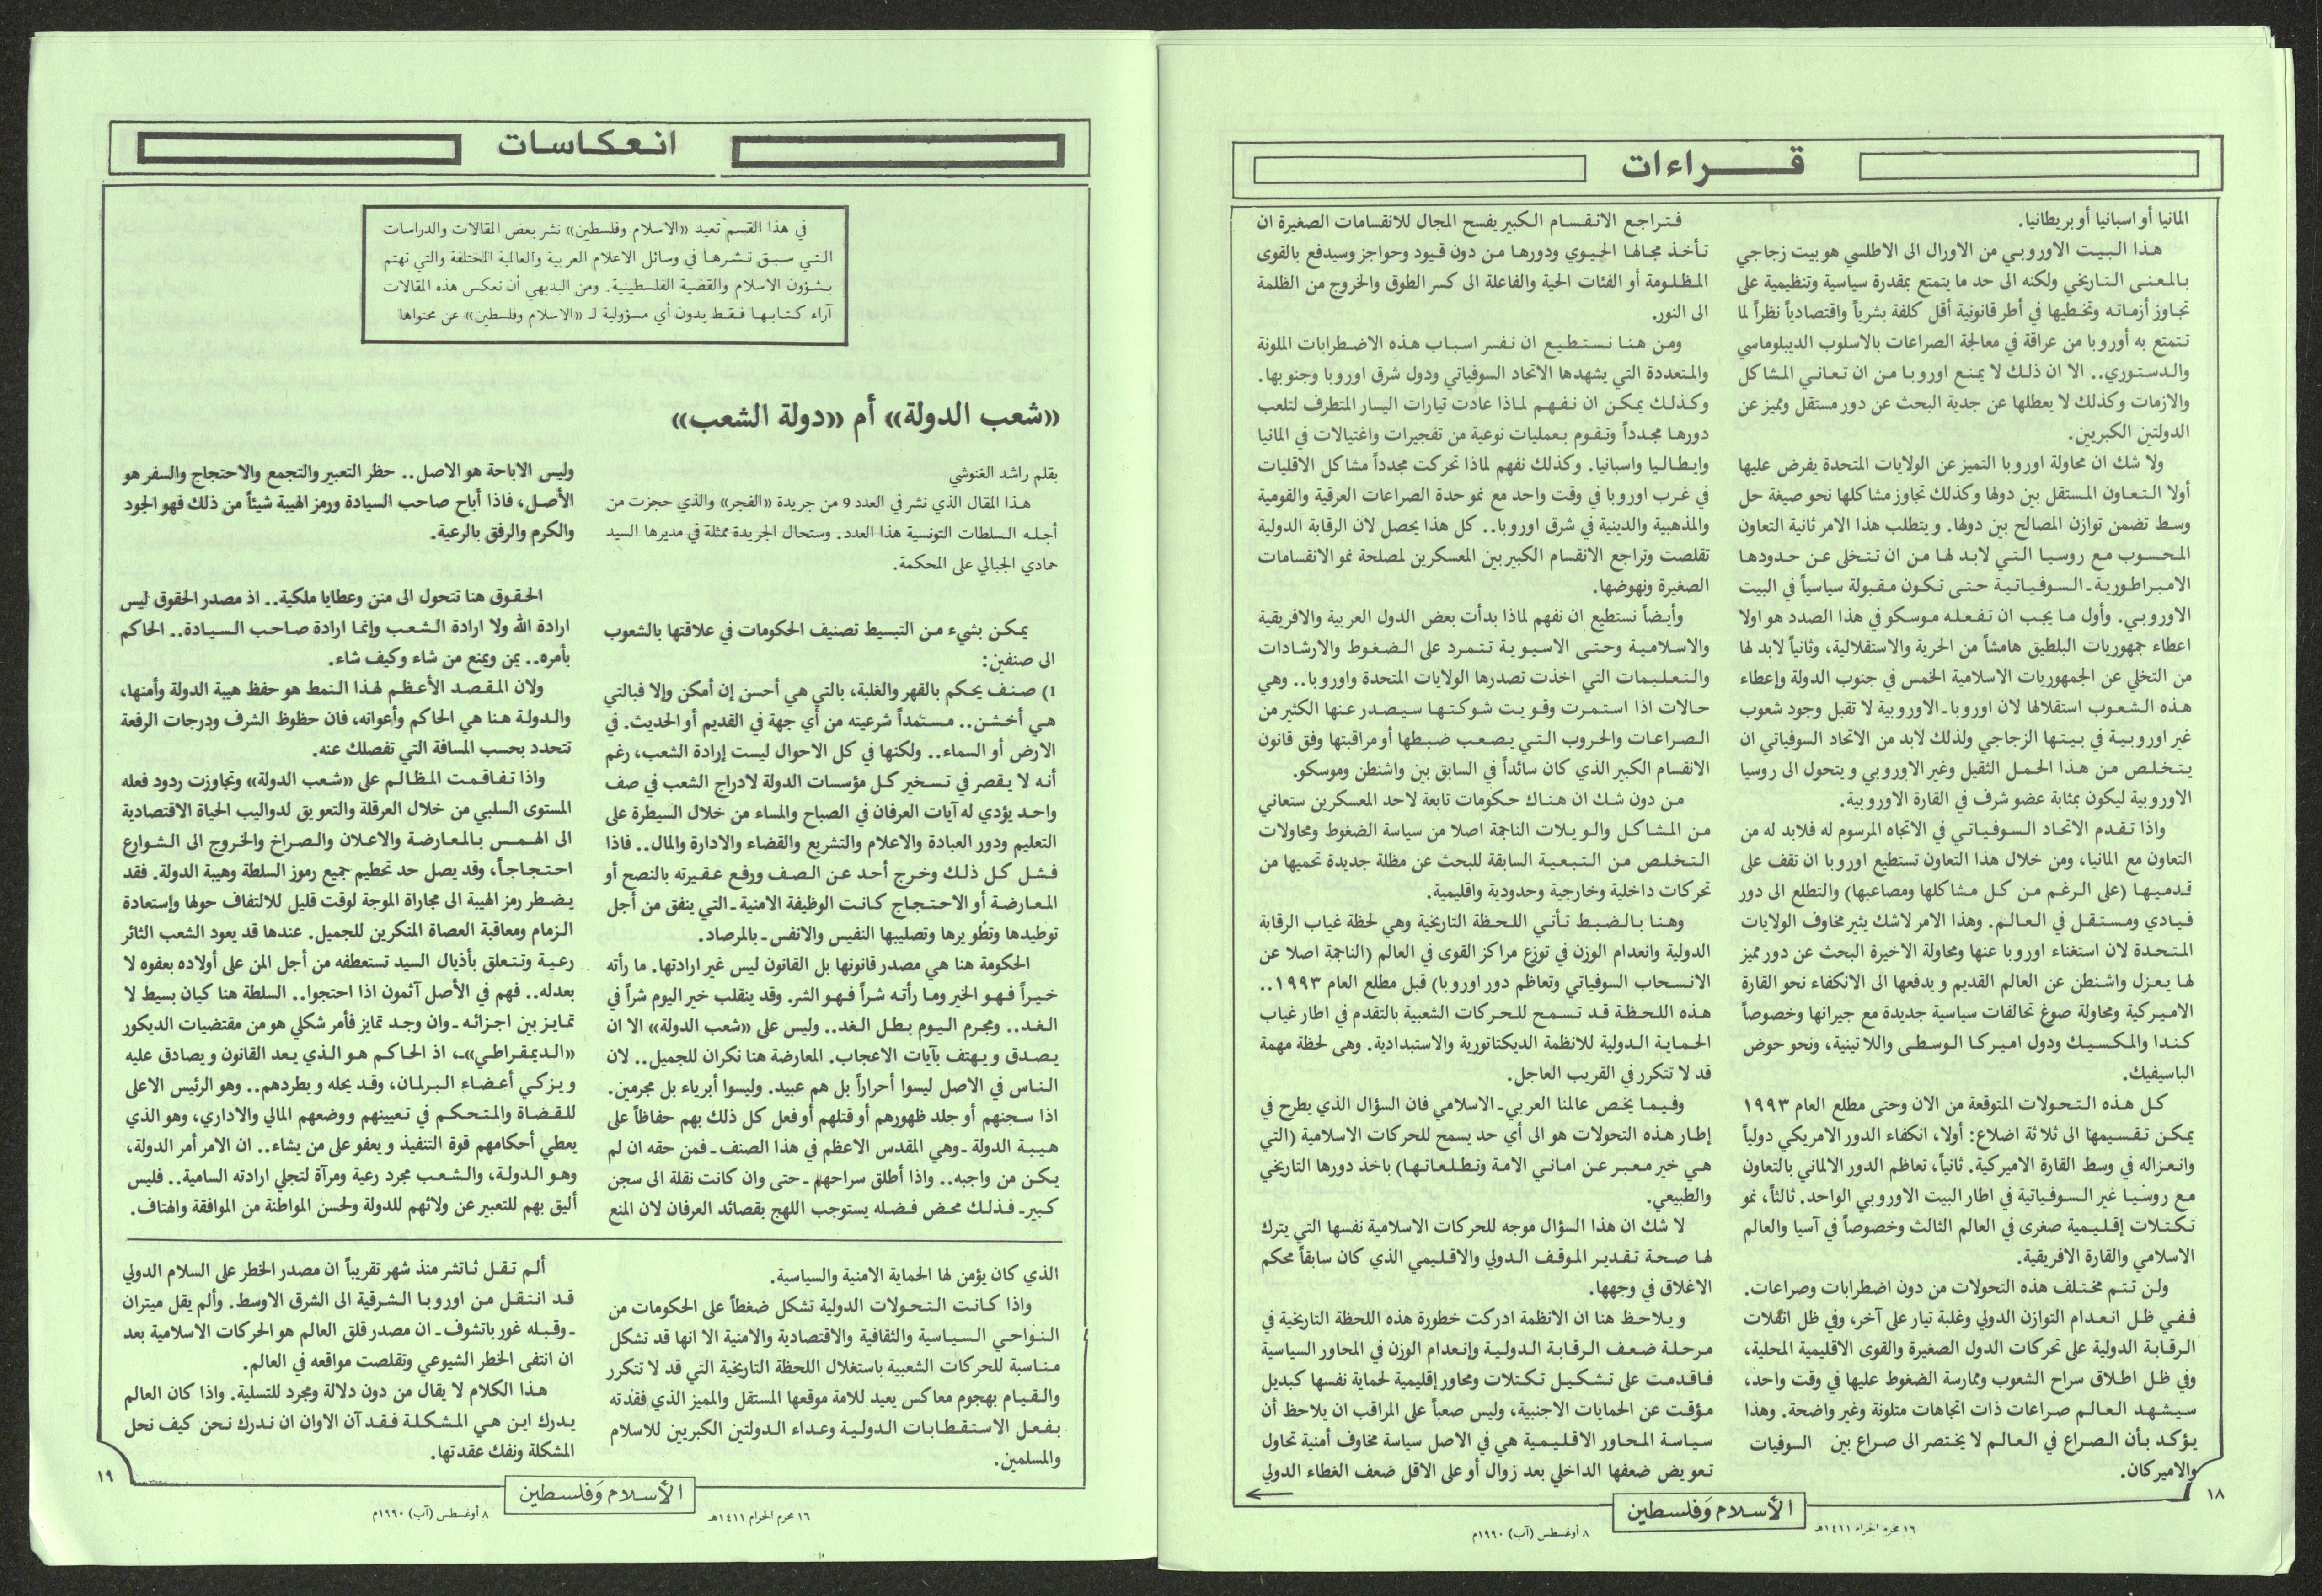 قـــراءات
المانيا أو اسبانيا أو بريطانيا.
هذا البيت الاوروبي من الاورال الى الاطلسي هو بيت زجاجي
بالمعنى التاريخي ولكنه الى حد ما يتمتع بمقدرة سياسية وتنظيمية على
تجاوز أزماته وتخطيها في أطر قانونية أقل كلفة بشرياً واقتصادياً نظراً لما
تتمتع به أوروبا من عراقة في معالجة الصراعات بالاسلوب الديبلوماسي
والدستوري.. الا ان ذلك لا يمنع اوروبا من ان تعاني المشاكل
والازمات وكذلك لا يعطلها عن جدية البحث عن دور مستقل ومميز عن
الدولتين الكبريين.
ولا شك ان محاولة اوروبا التميز عن الولايات المتحدة يفرض عليها
أولا التعاون المستقل بين دولها وكذلك تجاوز مشاكلها نحو صيغة حل
وسط تضمن توازن المصالح بين دولها. ويتطلب هذا الامر ثانية التعاون
المحسوب مع روسيا التي لابد لها من ان تتخلى عن حدودها
الامبراطورية ـ السوفياتية حتى تكون مقبولة سياسياً في البيت
الاوروبي. وأول ما يجب ان تفعله موسكو في هذا الصدد هو اولا
اعطاء جمهوريات البلطيق هامشاً من الحرية والاستقلالية، وثانياً لابد لها
من التخلي عن الجمهوريات الاسلامية الخمس في جنوب الدولة وإعطاء
هذه الشعوب استقلالها لان اوروبا ـ الاوروبية لا تقبل وجود شعوب
غير اوروبية في بيتها الزجاجي ولذلك لابد من الاتحاد السوفياتي ان
يتخلص من هذا الحمل الثقيل وغير الاوروبي ويتحول الى روسيا
الاوروبية ليكون بمثابة عضو شرف في القارة الاوروبية.
واذا تقدم الاتحاد السوفياتي في الاتجاه المرسوم له فلابد له من
التعاون مع المانيا، ومن خلال هذا التعاون تستطيع اوروبا ان تقف على
قدميها (على الرغم من كل مشاكلها ومصاعبها) والتطلع الى دور
قيادي ومستقل في العالم. وهذا الامر لاشك يثير مخاوف الولايات
المتحدة لان استغناء اوروبا عنها ومحاولة الاخيرة البحث عن دور مميز
لها يعزل واشنطن عن العالم القديم ويدفعها الى الانكفاء نحو القارة
الاميركية ومحاولة صوغ تحالفات سياسية جديدة مع جيرانها وخصوصاً
كندا والمكسيك ودول اميركا الوسطى واللاتينية، ونحو حوض
الباسيفيك.
كل هذه التحولات المتوقعة من الان وحتى مطلع العام ١٩٩٣
يمكن تقسيمها الى ثلاثة اضلاع: أولا، انكفاء الدور الامريكي دولياً
وانعزاله في وسط القارة الاميركية. ثانياً، تعاظم الدور الالماني بالتعاون
مع روسيا غير السوفياتية في اطار البيت الاوروبي الواحد. ثالثاً، نمو
تكتلات إقليمية صغرى في العالم الثالث وخصوصاً في آسيا والعالم
الاسلامي والقارة الافريقية.
ولن تتم مختلف هذه التحولات من دون اضطرابات وصراعات.
ففي ظل انعدام التوازن الدولي وغلبة تيار على آخر، وفي ظل انفلات
الرقابة الدولية على تحركات الدول الصغيرة والقوى الاقليمية المحلية،
وفي ظل اطلاق سراح الشعوب وممارسة الضغوط عليها في وقت واحد،
سيشهد العالم صراعات ذات اتجاهات متلونة وغير واضحة. وهذا
يؤكد بأن الصراع في العالم لا يختصر الى صراع بين السوفيات
والاميركان.
فتراجع الانقسام الكبير يفسح المجال للانقسامات الصغيرة ان
تأخذ مجالها الحيوي ودورها من دون قيود وحواجز وسيدفع بالقوى
المظلومة أو الفئات الحية والفاعلة الى كسر الطوق والخروج من الظلمة
الى النور.
ومن هنا نستطيع ان نفسر اسباب هذه الاضطرابات الملونة
والمتعددة التي يشهدها الاتحاد السوفياتي ودول شرق اوروبا وجنوبها.
وكذلك يمكن ان نفهم لماذا عادت تيارات اليسار المتطرف لتلعب
دورها مجدداً وتقوم بعمليات نوعية من تفجيرات واغتيالات في المانيا
وايطاليا واسبانيا. وكذلك نفهم لماذا تحركت مجدداً مشاكل الاقليات
في غرب اوروبا في وقت واحد مع نمو حدة الصراعات العرقية والقومية
والمذهبية والدينية في شرق اوروبا.. كل هذا يحصل لان الرقابة الدولية
تقلصت وتراجع الانقسام الكبير بين المعسكرين لمصلحة نمو الانقسامات
الصغيرة ونهوضها.
وأيضاً نستطيع ان نفهم لماذا بدأت بعض الدول العربية والافريقية
والاسلامية وحتى الاسيوية تتمرد على الضغوط والارشادات
والتعليمات التي اخذت تصدرها الولايات المتحدة واوروبا.. وهي
حالات اذا استمرت وقويت شوكتها سيصدر عنها الكثير من
الصراعات والحروب التي يصعب ضبطها أو مراقبتها وفق قانون
الانقسام الكبير الذي كان سائداً في السابق بين واشنطن وموسكو.
من دون شك ان هناك حكومات تابعة لاحد المعسكرين ستعاني
من المشاكل والويلات الناجمة اصلا من سياسة الضغوط ومحاولات
التخلص من التبعية السابقة للبحث عن مظلة جديدة تحميها من
تحركات داخلية وخارجية وحدودية واقليمية.
وهنا بالضبط تأتي اللحظة التاريخية وهي لحظة غياب الرقابة
الدولية وانعدام الوزن في توزع مراكز القوى في العالم (الناجمة اصلا عن
الانسحاب السوفياتي وتعاظم دور اوروبا) قبل مطلع العام ١٩٩٣..
هذه اللحظة قد تسمح للحركات الشعبية بالتقدم في اطار غياب
الحماية الدولية للانظمة الديكتاتورية والاستبدادية. وهى لحظة مهمة
قد لا تتكرر في القريب العاجل.
وفيما يخص عالمنا العربي ـ الاسلامي فان السؤال الذي يطرح في
إطار هذه التحولات هو الى أي حد يسمح للحركات الاسلامية (التي
هي خير معبر عن اماني الامة وتطلعاتها) باخذ دورها التاريخي
والطبيعي.
لا شك ان هذا السؤال موجه للحركات الاسلامية نفسها التي يترك
لها صحة تقدير الموقف الدولي والاقليمي الذي كان سابقاً محكم
الاغلاق في وجهها.
ويلاحظ هنا ان الانظمة ادركت خطورة هذه اللحظة التاريخية في
مرحلة ضعف الرقابة الدولية وإنعدام الوزن في المحاور السياسية
فاقدمت على تشكيل تكتلات ومحاور إقليمية لحماية نفسها كبديل
مؤقت عن الحمايات الاجنبية، وليس صعباً على المراقب ان يلاحظ أن
سياسة المحاور الاقليمية هي في الاصل سياسة مخاوف أمنية تحاول
تعويض ضعفها الداخلي بعد زوال أو على الاقل ضعف الغطاء الدولي
١٨
الأسلام وَفلسطين
١٦ محرم الحرام ١٤١١هـ
٨ أوغسطس (آب) ١٩٩٠م
انعكاسات
في هذا القسم تعيد «الاسلام وفلسطين» نشر بعض المقالات والدراسات
التي سبق نشرها في وسائل الاعلام العربية والعالمية المختلفة والتي تهتم
بشؤون الاسلام والقضية الفلسطينية. ومن البديهي أن تعكس هذه المقالات
آراء كتابها فقط بدون أي مسؤولية لـ «الاسلام وفلسطين» عن محتواها
«شعب الدولة» أم «دولة الشعب»
بقلم راشد الغنوشي
هذا المقال الذي نشر في العدد 9 من جريدة «الفجر» والذي حجزت من
أجله السلطات التونسية هذا العدد. وستحال الجريدة ممثلة في مديرها السيد
حمادي الجبالي على المحكمة.
يمكن بشيء من التبسيط تصنيف الحكومات في علاقتها بالشعوب
الى صنفين:
١) صنف يحكم بالقهر والغلبة، بالتي هي أحسن إن أمكن وإلا فبالتي
هي أخشن.. مستمداً شرعيته من أي جهة في القديم أو الحديث. في
الارض أو السماء.. ولكنها في كل الاحوال ليست إرادة الشعب، رغم
أنه لا يقصر في تسخير كل مؤسسات الدولة لادراج الشعب في صف
واحد يؤدي له آيات العرفان في الصباح والمساء من خلال السيطرة على
التعليم ودور العبادة والاعلام والتشريع والقضاء والادارة والمال.. فاذا
فشل كل ذلك وخرج أحد عن الصف ورفع عقيرته بالنصح أو
المعارضة أو الاحتجاج كانت الوظيفة الامنية ـ التي ينفق من أجل
توطيدها وتطويرها وتصليبها النفيس والانفس ـ بالمرصاد.
الحكومة هنا هي مصدر قانونها بل القانون ليس غير ارادتها. ما رأته
خيراً فهو الخير وما رأته شراً فهو الشر. وقد ينقلب خير اليوم شراً في
الغد.. ومجرم اليوم بطل الغد.. وليس على «شعب الدولة» الا ان
يصدق ويهتف بآيات الاعجاب. المعارضة هنا نكران للجميل.. لان
الناس في الاصل ليسوا أحراراً بل هم عبيد. وليسوا أبرياء بل مجرمين.
اذا سجنهم أو جلد ظهورهم أو قتلهم أو فعل كل ذلك بهم حفاظاً على
هيبة الدولة ـ وهي المقدس الاعظم في هذا الصنف ـ فمن حقه ان لم
يكن من واجبه.. واذا أطلق سراحهم ـ حتى وان كانت نقلة الى سجن
كبير ـ فذلك محض فضله يستوجب اللهج بقصائد العرفان لان المنع
وليس الاباحة هو الاصل.. حظر التعبير والتجمع والاحتجاج والسفر هو
الأصل، فاذا أباح صاحب السيادة ورمز الهيبة شيئاً من ذلك فهو الجود
والكرم والرفق بالرعية.
الحقوق هنا تتحول الى منن وعطايا ملكية.. اذ مصدر الحقوق ليس
ارادة الله ولا ارادة الشعب وإنما ارادة صاحب السيادة.. الحاكم
بأمره.. يمن ويمنع من شاء وكيف شاء.
ولان المقصد الأعظم لهذا النمط هو حفظ هيبة الدولة وأمنها،
والدولة هنا هي الحاكم وأعوانه، فان حظوظ الشرف ودرجات الرفعة
تتحدد بحسب المسافة التي تفصلك عنه.
واذا تفاقمت المظالم على «شعب الدولة» وتجاوزت ردود فعله
المستوى السلبي من خلال العرقلة والتعويق لدواليب الحياة الاقتصادية
الى الهمس بالمعارضة والاعلان والصراخ والخروج الى الشوارع
احتجاجاً، وقد يصل حد تحطيم جميع رموز السلطة وهيبة الدولة. فقد
يضطر رمز الهيبة الى مجاراة الموجة لوقت قليل للالتفاف حولها وإستعادة
الزمام ومعاقبة العصاة المنكرين للجميل. عندها قد يعود الشعب الثائر
رعية وتتعلق بأذيال السيد تستعطفه من أجل المن على أولاده بعفوه لا
بعدله.. فهم في الأصل آثمون اذا احتجوا.. السلطة هنا كيان بسيط لا
تمايز بين اجزائه ـ وان وجد تمايز فأمر شكلي هو من مقتضيات الديكور
«الديمقراطي» ـ، اذ الحاكم هو الذي يعد القانون ويصادق عليه
ويزكي أعضاء البرلمان، وقد يحله ويطردهم.. وهو الرئيس الاعلى
للقضاة والمتحكم في تعيينهم ووضعهم المالي والاداري، وهو الذي
يعطي أحكامهم قوة التنفيذ ويعفو على من يشاء.. ان الامر أمر الدولة،
وهو الدولة، والشعب مجرد رعية ومرآة لتجلي ارادته السامية.. فليس
أليق بهم للتعبير عن ولائهم للدولة ولحسن المواطنة من الموافقة والهتاف.
الذي كان يؤمن لها الحماية الامنية والسياسية.
واذا كانت التحولات الدولية تشكل ضغطاً على الحكومات من
النواحي السياسية والثقافية والاقتصادية والامنية الا انها قد تشكل
مناسبة للحركات الشعبية باستغلال اللحظة التاريخية التي قد لا تتكرر
والقيام بهجوم معاكس يعيد للامة موقعها المستقل والمميز الذي فقدته
بفعل الاستقطابات الدولية وعداء الدولتين الكبريين للاسلام
والمسلمين.
ألم تقل ثاتشر منذ شهر تقريباً ان مصدر الخطر على السلام الدولي
قد انتقل من اوروبا الشرقية الى الشرق الاوسط. وألم يقل ميتران
ـ وقبله غورباتشوف ـ ان مصدر قلق العالم هو الحركات الاسلامية بعد
ان انتفى الخطر الشيوعي وتقلصت مواقعه في العالم.
هذا الكلام لا يقال من دون دلالة ومجرد للتسلية. واذا كان العالم
يدرك اين هي المشكلة فقد آن الاوان ان ندرك نحن كيف نحل
المشكلة ونفك عقدتها.
١٩
الأسلام وَفلسطين
١٦ محرم الحرام ١٤١١هـ
٨ أوغسطس (آب) ١٩٩٠م